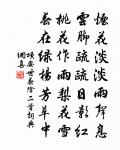 花淡淡雨聲
雲腳疏疏日影紅
桃花作雨梨花雪
春在綠楊芳草中
項安世春陰二首詞典
網